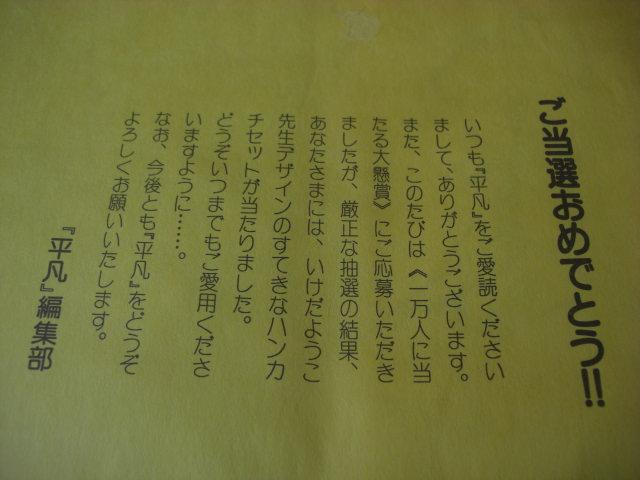 ご当選おめでとう!!
いつも『平凡』をご愛読ください
まして、ありがとうございます。
また、このたびは《一万人に当
たる大懸賞》にご応募いただき
ましたが、厳正な抽選の結果、
あなたさまには、いけだようこ
先生デザインのすてきなハンカ
チセットが当たりました。
どうぞいつまでもご愛用くださ
いますように……。
なお、今後とも『平凡』をどうぞ
よろしくお願いいたします。
『平凡』編集部